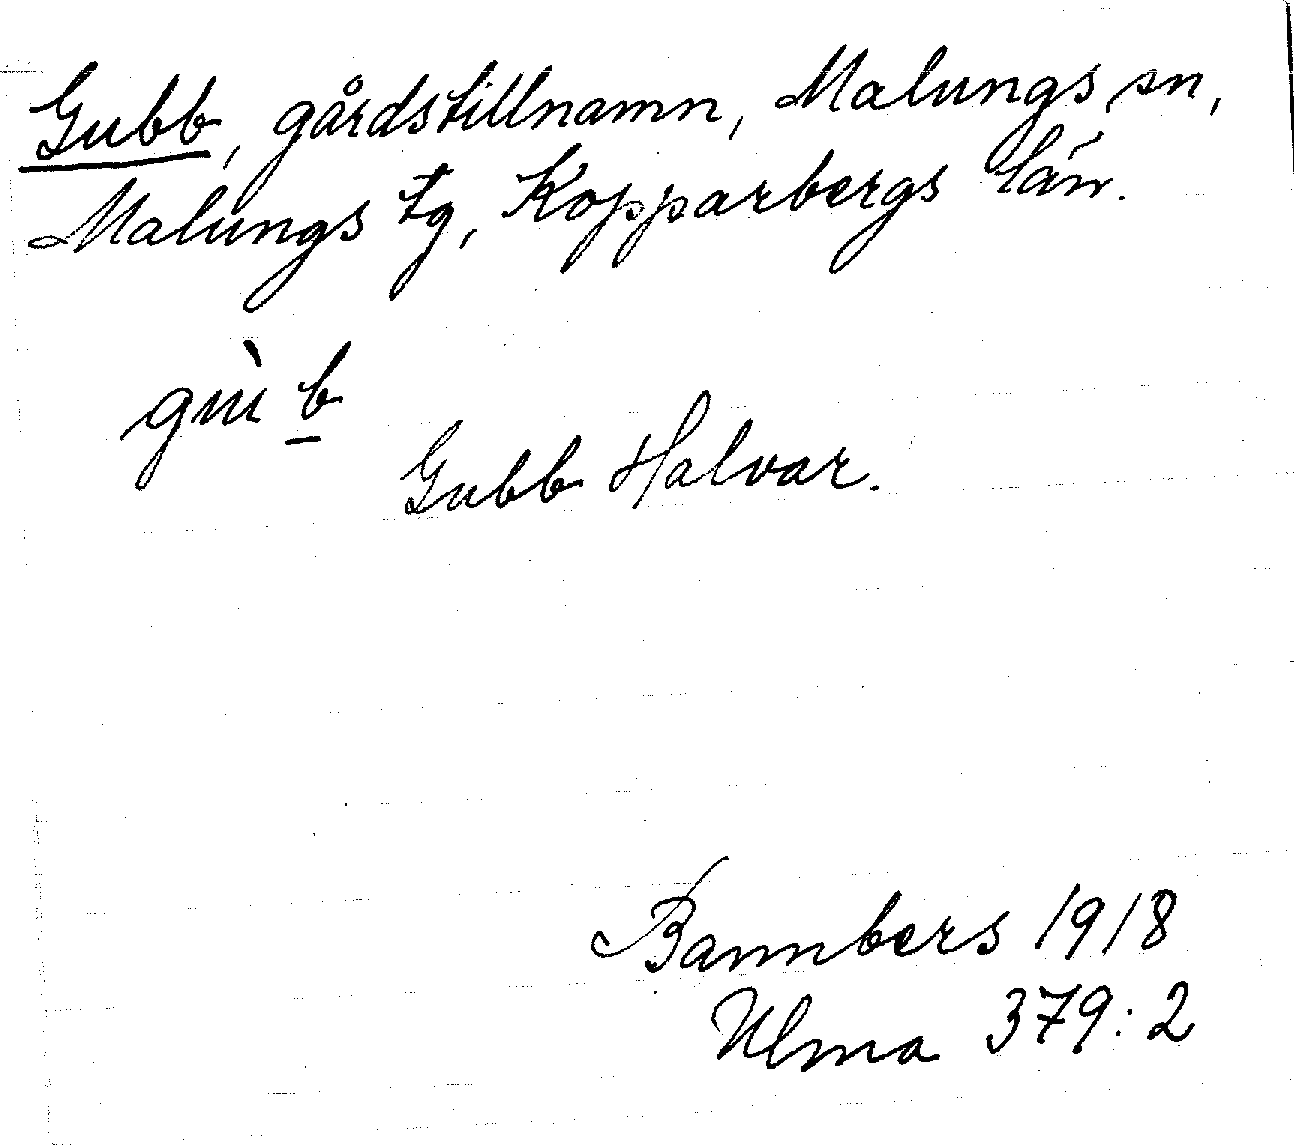 Gubb, gårdstillnamn, Malungs sn,
Malungs tg, Kopparbergs län.
gùb
Gubb Halvar.
Bannbers 1918
Ulma 379:2